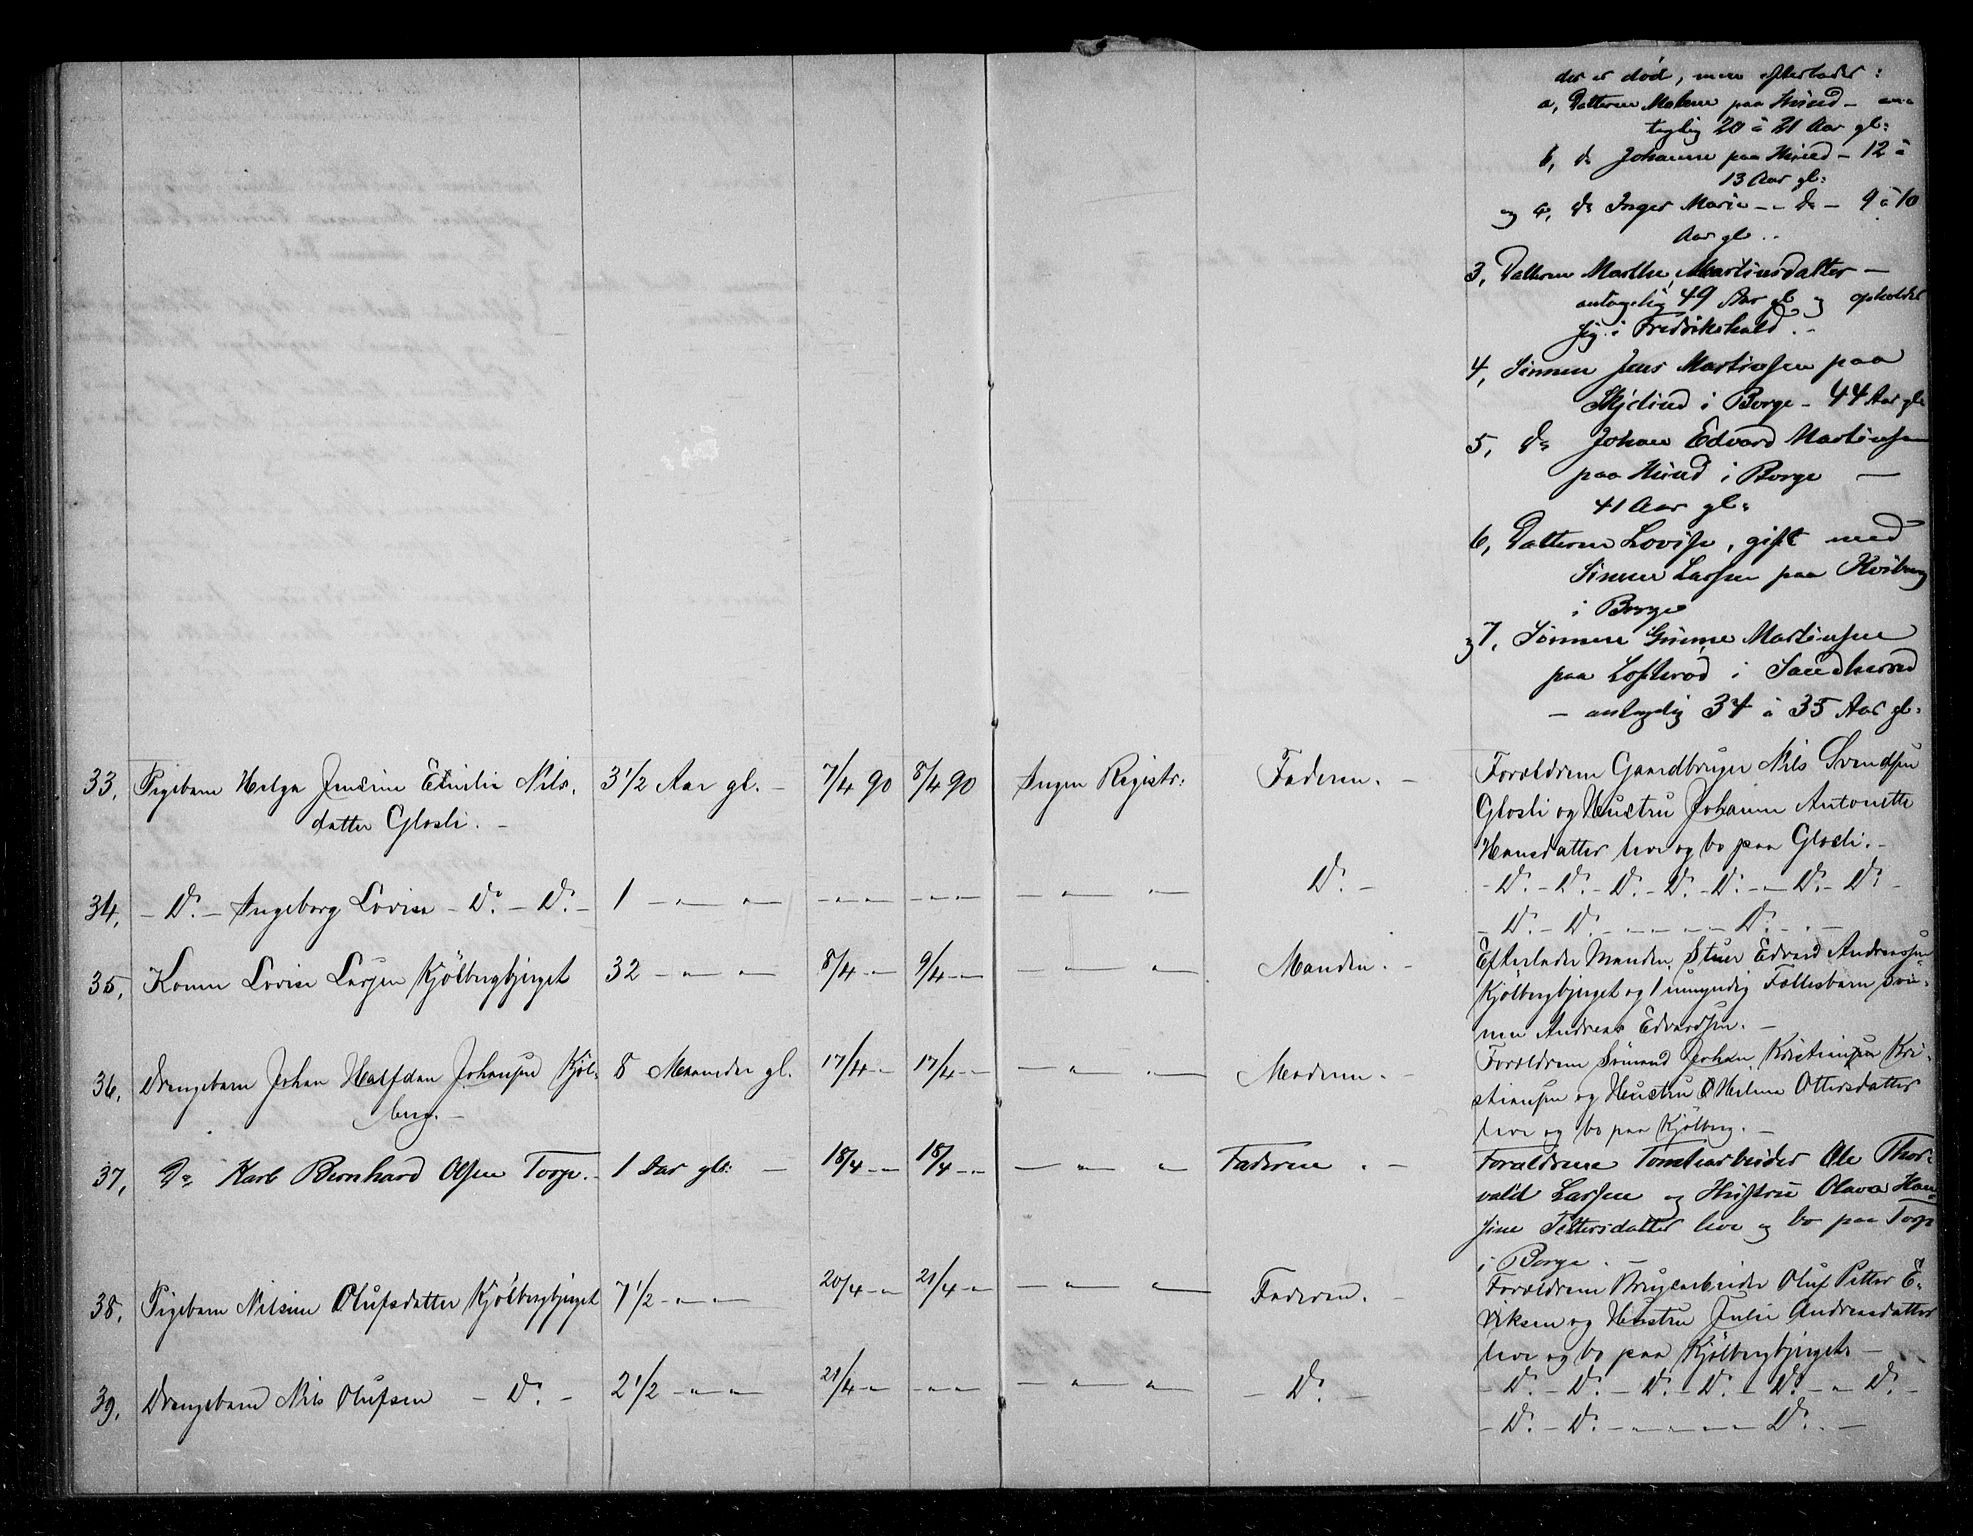 der er död, men efterlader:
a, Datteren Malene paa Hund – an-
tagelig 20 à 21 Aar gl:
b, do Johanne paa Hund – 12 à
13 Aar gl:
og c, do Inger Marie – – do – 9 à 10
Aar gl. .
3, Datteren Marthe Martinsdatter –
antagelig 49 Aar gl og opholder
sig i Fredrikshald. –
4, Sönnen Jens Martinsen paa
i Borge – 44 Aar gl
5, do Johan Edvard Martinsen
paa Hund i Borge –
41 Aar gl:
6, Datteren Lovise, gift med
Simen Larsen paa
i Borge
og 7, Sönnen Gunne Martinsen
paa Lofteröd i
– antagelig 34 à 35 Aar gl:
33, Pigebarn Helga Jensine Emilie Nils- 3 1/2 Aar gl. – 7/4 90 8/4 90 Ingen Registr: Faderen. – Forældrene Gaardbruger Nils Svendsen
datter Glosli. – Glosli og Hustru Johanne Antonette
Hansdatter leve og bo paa Glosli. –
34, – Do. – Ingeborg Lovise – Do. – Do. – 1 – " – – " – – – " – – – " – – – " – Do. – – Do. – Do. – Do. – Do. – Do. – " – Do. – Do. –
– Do. – Do. – – – – – Do. – . –
35, Konen Lovise Larsen Kjölbergbjerget 32 – " – " – 8/4 – " 9/4 – " – " – " – Manden. – Efterlader Manden, Edvard Andreassen
Kjölbergbjerget og 1 umyndig Fællesbarn Svin-
nen Andreas Edvardsen. –
36, Drengebarn Johan Halfdan Johansen Kjöl- 8 Maaneder gl. 17/4 – " 17/4 – " – " – " – Moderen. – Forældrene Sömand Johan Kristiansen Kri-
berg. – stiansen og Hustru Helene Ottersdatter
leve og bo paa Kjölberg. –
37, Do Karl Bernhard Olsen Torp. – 1 Aar gl: – 18/4 – " 18/4 – " – " – " Faderen . – Forældrene Tomtearbeider Ole Thor-
vald Larsen og Hustru Olava Han-
sine Pettersdatter leve og bo paa Torp
i Borge. –
38, Pigebarn Nilsine Olufsdatter Kjölbergbjerget 7 1/2 – " – " 20/4 – " 21/4 – " – " – " Faderen. – Forældrene Brugsarbeider Oluf Petter E-
riksen og Hustru Julie Andreasdatter
leve og bo paa Kjölbergbjerget. –
39, Drengebarn Nils Olufsen – Do. – 2 1/2 – " – " 21/4 – " – " – – " – " – Do. – – Do. – Do. – Do. – Do. – Do. – " – Do. –
– Do. – Do. – – – – – Do. . –